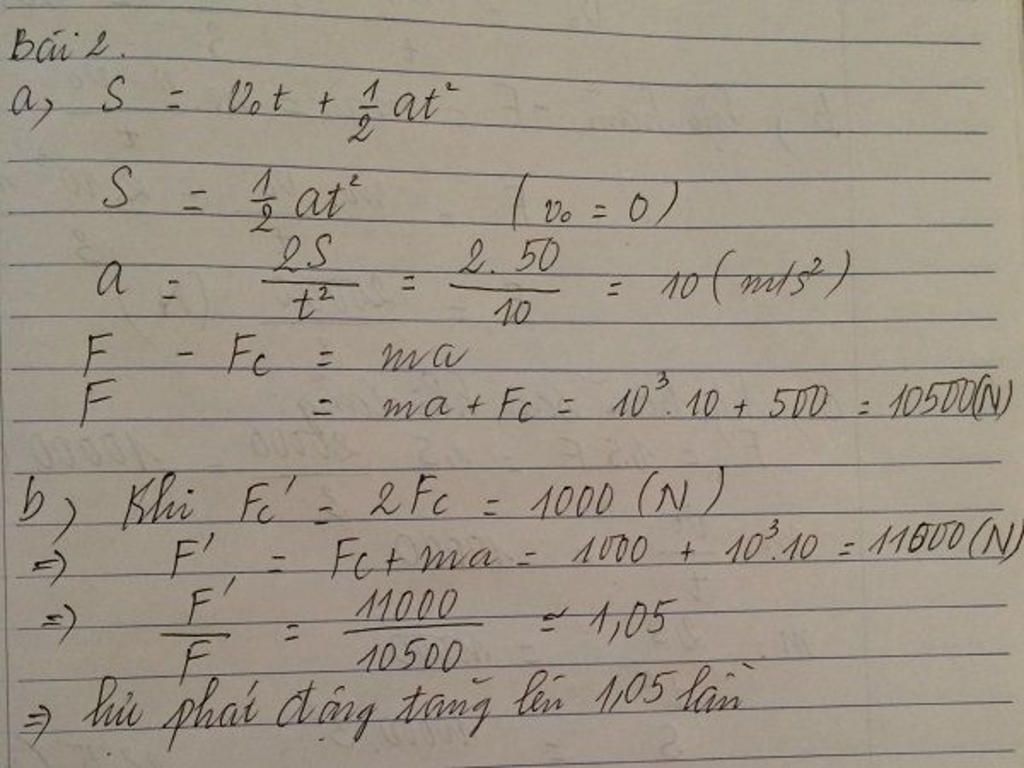 Bài 2.
a, S = v₀t + 1/2 at²
S = 1/2 at² (v₀ = 0)
a = 2S/t² = 2.50/10 = 10 (m/s²)
F - Fc = ma
F = ma + Fc = 10³.10 + 500 = 10500(N)
b) Khi Fc' = 2Fc = 1000 (N)
=> F' = Fc + ma = 1000 + 10³.10 = 11000(N)
=> F'/F = 11000/10500 ≈ 1,05
=> lực phát động tăng lên 1,05 lần